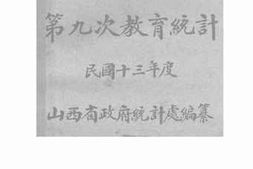 第九次教育統計
民國十三年度
山西省政府統計處編纂